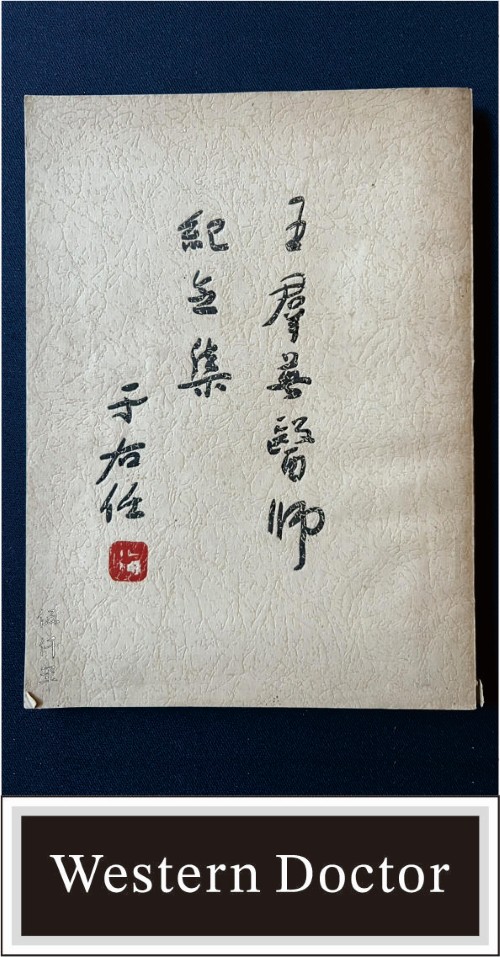 王羣英醫師
紀念集
于右任
Western Doctor